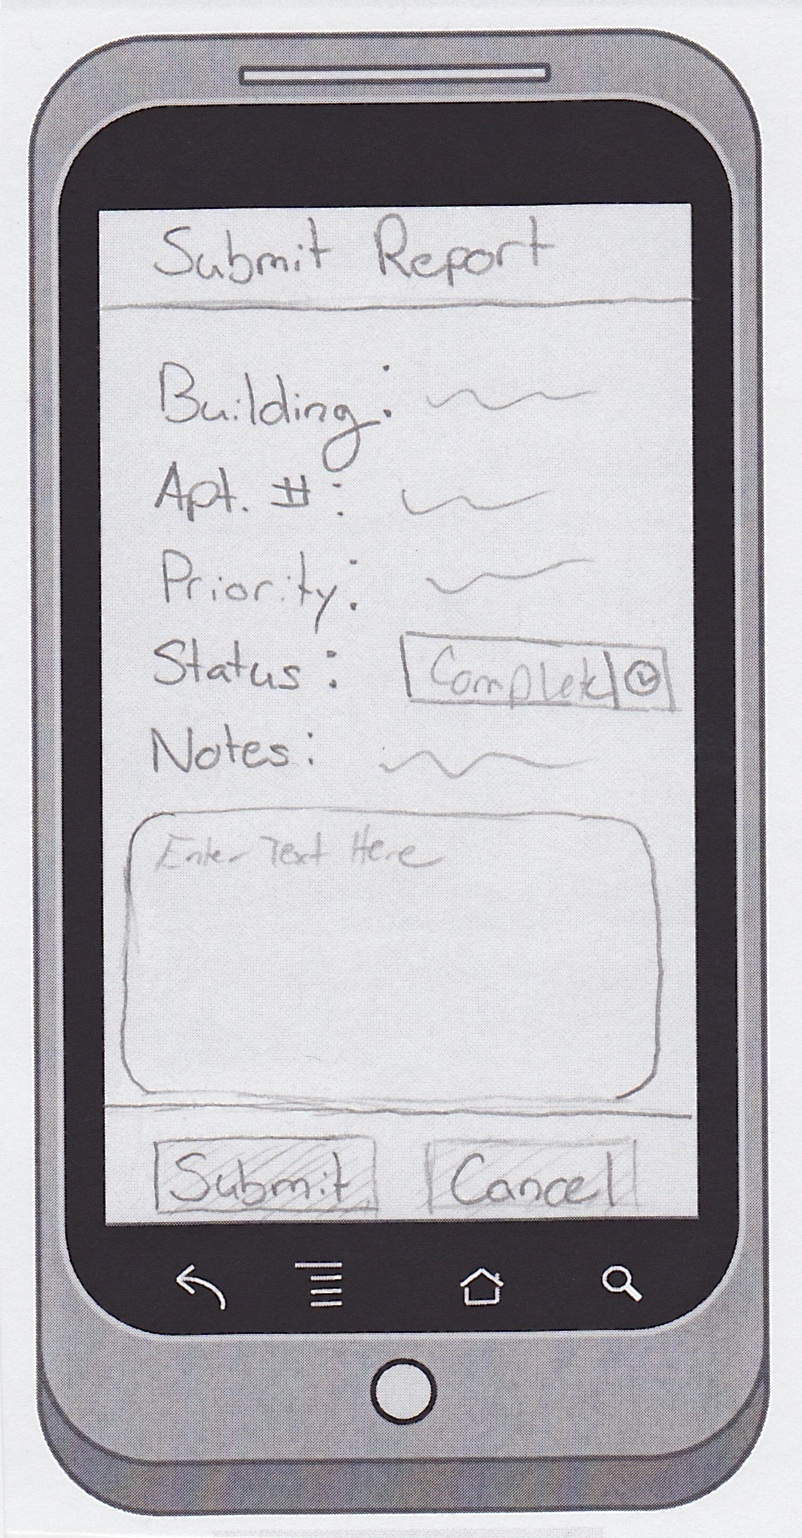 Submit Report
Building:
Apt. #:
Priority:
Status: Complete
Notes:
Enter Text Here
Submit Cancel